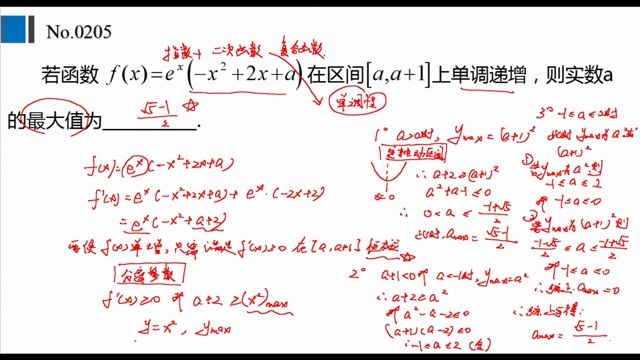 No.0205
指数+二次函数 复合函数
若函数 f(x)=eˣ(-x²+2x+a) 在区间[a,a+1]上单调递增，则实数a
单调性
的最大值为 (√5-1)/2 ☆.
f(x)=eˣ(-x²+2x+a)
f'(x)=eˣ(-x²+2x+a)+eˣ·(-2x+2)
=eˣ(-x²+a+2)
要使f(x)单增，只需满足f'(x)≥0在[a,a+1]恒成立
分离参数
f'(x)≥0 即 a+2≥(x²)max
y=x², ymax
1° a>0时, ymax=(a+1)²
定轴动区间
x=0
∴a+2≥(a+1)²
a²+a-1≤0
∴ 0<a≤(-1+√5)/2
此时,amax=(√5-1)/2
2° a+1<0即a<-1时,ymax=a²
∴a+2≥a²
即a²-a-2≤0
(a+1)(a-2)≤0
∴-1≤a≤2(舍)
3° -1≤a≤0时
此时ymax为a²或
(a+1)²
①
-1≤a≤2
即-1≤a≤0
②若ymax为(a+1)²则
(-1-√5)/2≤a≤(-1+√5)/2
即-1≤a≤0
∴综上amax=0
∴综上可得:
amax=(√5-1)/2